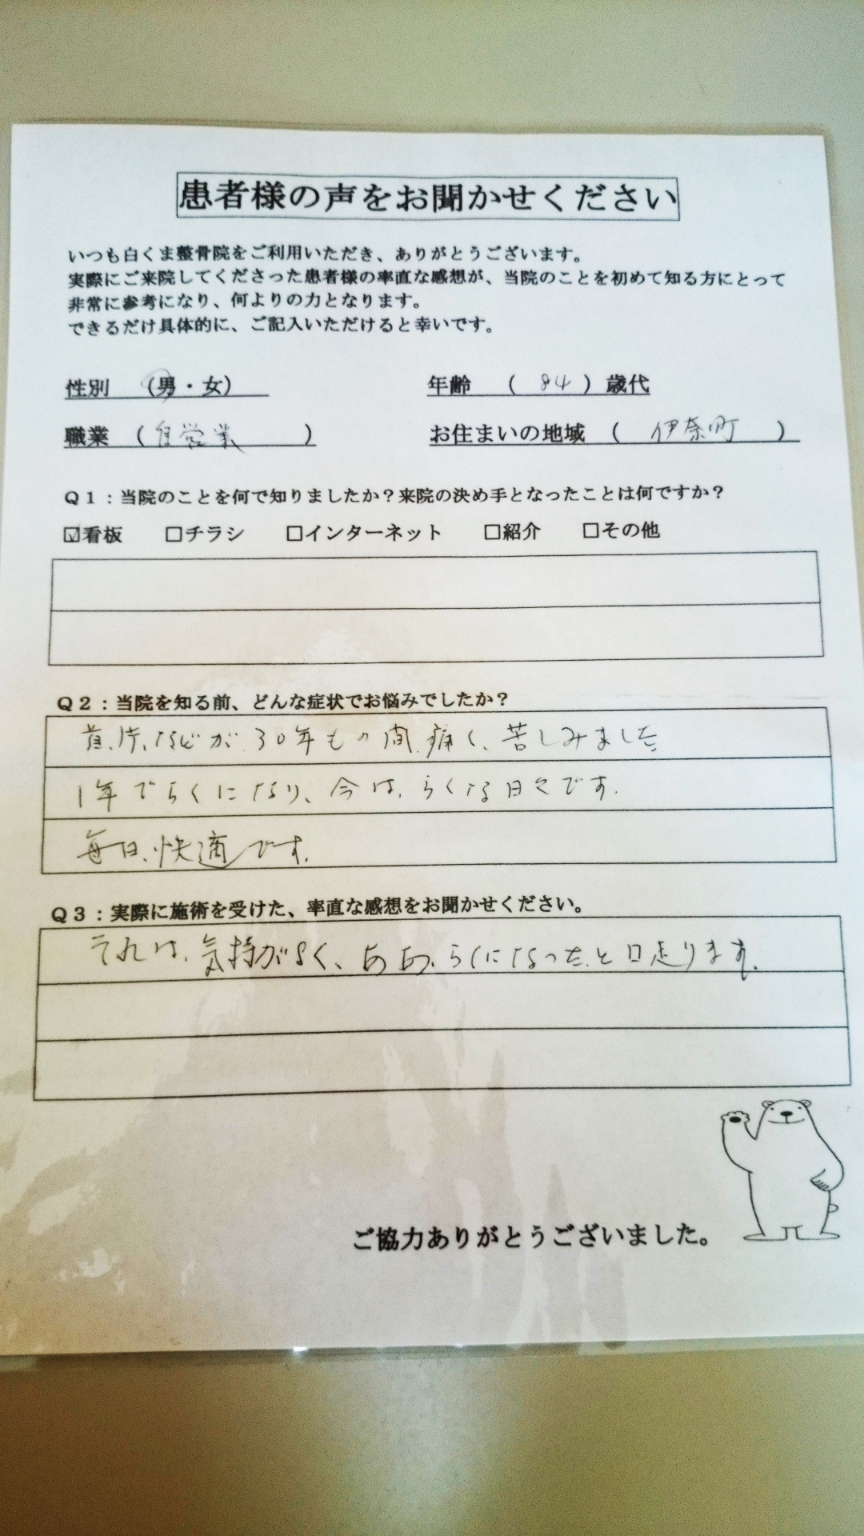 患者様の声をお聞かせください
いつも白くま整骨院をご利用いただき、ありがとうございます。
実際にご来院してくださった患者様の率直な感想が、当院のことを初めて知る方にとって
非常に参考になり、何よりの力となります。
できるだけ具体的に、ご記入いただけると幸いです。
性別 (男・女) 年齢 ( 84 ) 歳代
職業 ( 自営業 ) お住まいの地域 ( 伊奈町 )
Q1:当院のことを何で知りましたか?来院の決め手となったことは何ですか?
☑看板 □チラシ □インターネット □紹介 □その他
Q2:当院を知る前、どんな症状でお悩みでしたか?
首、肩、などが30年もの間、痛く、苦しみました
1年でらくになり、今は、らくな日々です.
毎日、快適です.
Q3:実際に施術を受けた、率直な感想をお聞かせください。
それは、気持がよく、ああ、らくになったと口走ります.
ご協力ありがとうございました。